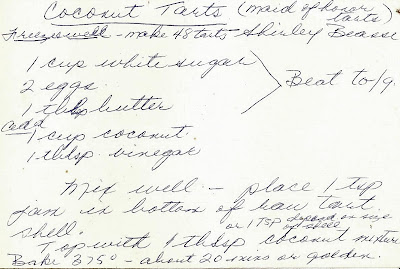 Coconut Tarts (maid of honor tarts)
Freezes well - make 48 tarts - Shirley Beasse
1 cup white sugar
2 eggs
1 tblsp butter
Beat to/g.
Add
1 cup coconut
1 tblsp vinegar
Mix well - place 1 tsp
jam in bottom of raw tart
shell.
or 1 TSP depend on size of shell
Top with 1 tblsp coconut mixture
Bake 375° - about 20 mins or golden.